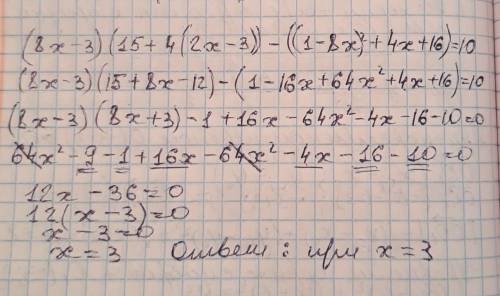 (8x-3)(15+4(2x-3))-((1-8x)²+4x+16)=10
(8x-3)(15+8x-12)-(1-16x+64x²+4x+16)=10
(8x-3)(8x+3)-1+16x-64x²-4x-16-10=0
64x²-9-1+16x-64x²-4x-16-10=0
12x-36=0
12(x-3)=0
x-3=0
x=3 Ответ: при x=3